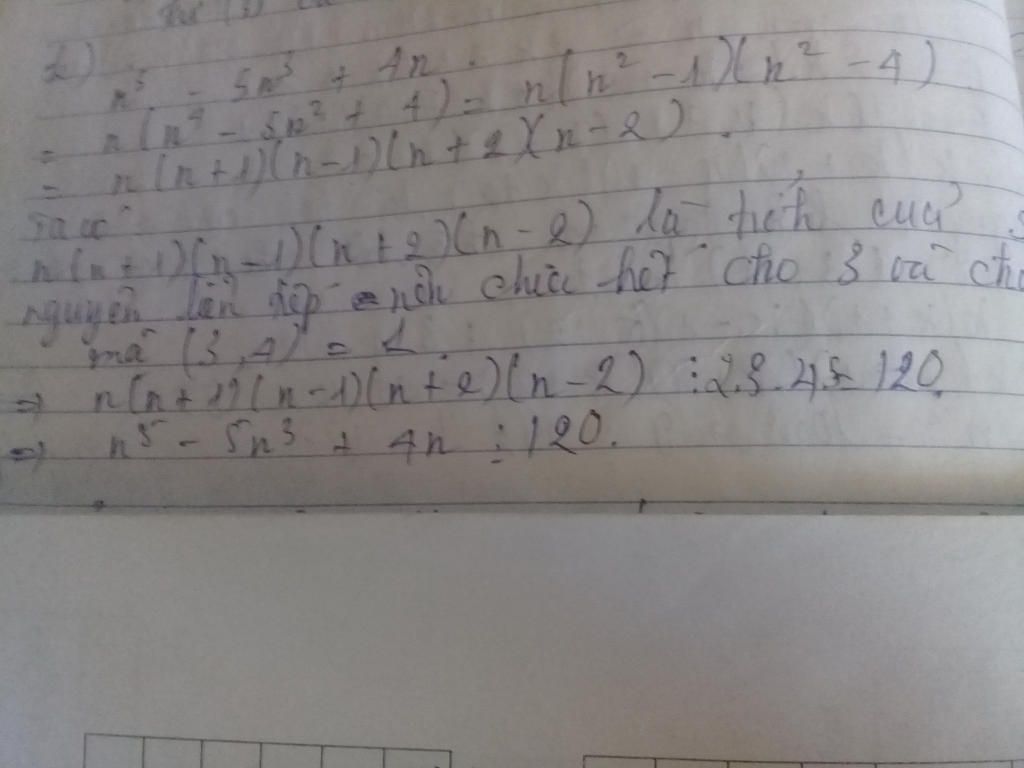 2) n⁵ - 5n³ + 4n.
= n(n⁴ - 5n² + 4) = n(n² - 1)(n² - 4)
= n(n+1)(n-1)(n+2)(n-2).
Ta có
n(n+1)(n-1)(n+2)(n-2) là tích của 5
nguyên liên tiếp nên chia hết cho 3 và cho
mà (3,4) = 1.
=> n(n+1)(n-1)(n+2)(n-2) ⋮ 2.3.4.5 = 120.
=> n⁵ - 5n³ + 4n ⋮ 120.